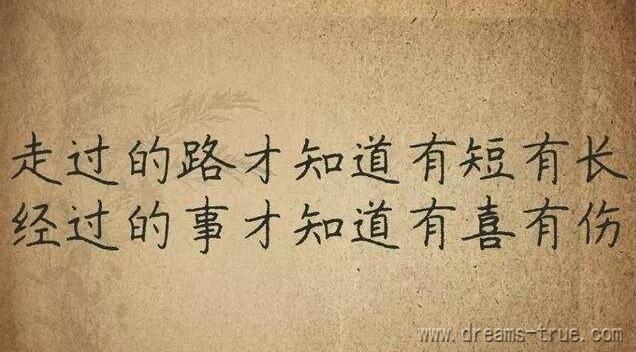 走过的路才知道有短有长
经过的事才知道有喜有伤
www.dreams-true.com